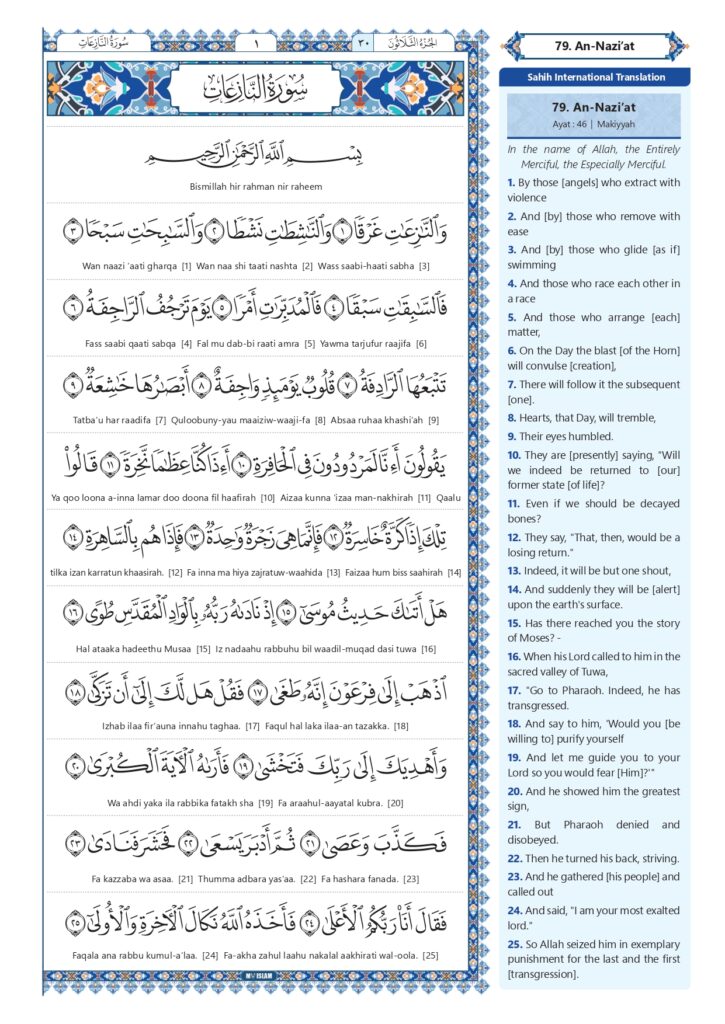 سُورَةُ النَّازِعَاتِ
١
٣٠
الجُزْءُ الثَّلَاثُونَ
سُورَةُ النَّازِعَاتِ
بِسْمِ ٱللَّهِ ٱلرَّحْمَٰنِ ٱلرَّحِيمِ
Bismillah hir rahman nir raheem
وَٱلنَّٰزِعَٰتِ غَرْقًا ١ وَٱلنَّٰشِطَٰتِ نَشْطًا ٢ وَٱلسَّٰبِحَٰتِ سَبْحًا ٣
Wan naazi 'aati gharqa [1] Wan naa shi taati nashta [2] Wass saabi-haati sabha [3]
فَٱلسَّٰبِقَٰتِ سَبْقًا ٤ فَٱلْمُدَبِّرَٰتِ أَمْرًا ٥ يَوْمَ تَرْجُفُ ٱلرَّاجِفَةُ ٦
Fass saabi qaati sabqa [4] Fal mu dab-bi raati amra [5] Yawma tarjufur raajifa [6]
تَتْبَعُهَا ٱلرَّادِفَةُ ٧ قُلُوبٌ يَوْمَئِذٍ وَاجِفَةٌ ٨ أَبْصَٰرُهَا خَٰشِعَةٌ ٩
Tatba'u har raadifa [7] Quloobuny-yau maaiziw-waaji-fa [8] Absaa ruhaa khashi'ah [9]
يَقُولُونَ أَءِنَّا لَمَرْدُودُونَ فِى ٱلْحَافِرَةِ ١٠ أَءِذَا كُنَّا عِظَٰمًا نَّخِرَةً ١١ قَالُوا۟
Ya qoo loona a-inna lamar doo doona fil haafirah [10] Aizaa kunna 'izaa man-nakhirah [11] Qaalu
تِلْكَ إِذًا كَرَّةٌ خَاسِرَةٌ ١٢ فَإِنَّمَا هِىَ زَجْرَةٌ وَٰحِدَةٌ ١٣ فَإِذَا هُم بِٱلسَّاهِرَةِ ١٤
tilka izan karratun khaasirah. [12] Fa inna ma hiya zajratuw-waahida [13] Faizaa hum biss saahirah [14]
هَلْ أَتَىٰكَ حَدِيثُ مُوسَىٰٓ ١٥ إِذْ نَادَىٰهُ رَبُّهُۥ بِٱلْوَادِ ٱلْمُقَدَّسِ طُوًى ١٦
Hal ataaka hadeethu Musaa [15] Iz nadaahu rabbuhu bil waadil-muqad dasi tuwa [16]
ٱذْهَبْ إِلَىٰ فِرْعَوْنَ إِنَّهُۥ طَغَىٰ ١٧ فَقُلْ هَل لَّكَ إِلَىٰٓ أَن تَزَكَّىٰ ١٨
Izhab ilaa fir'auna innahu taghaa. [17] Faqul hal laka ilaa-an tazakka. [18]
وَأَهْدِيَكَ إِلَىٰ رَبِّكَ فَتَخْشَىٰ ١٩ فَأَرَىٰهُ ٱلْءَايَةَ ٱلْكُبْرَىٰ ٢٠
Wa ahdi yaka ila rabbika fatakh sha [19] Fa araahul-aayatal kubra. [20]
فَكَذَّبَ وَعَصَىٰ ٢١ ثُمَّ أَدْبَرَ يَسْعَىٰ ٢٢ فَحَشَرَ فَنَادَىٰ ٢٣
Fa kazzaba wa asaa. [21] Thumma adbara yas'aa. [22] Fa hashara fanada. [23]
فَقَالَ أَنَا۠ رَبُّكُمُ ٱلْأَعْلَىٰ ٢٤ فَأَخَذَهُ ٱللَّهُ نَكَالَ ٱلْءَاخِرَةِ وَٱلْأُولَىٰٓ ٢٥
Faqala ana rabbu kumul-a'laa. [24] Fa-akha zahul laahu nakalal aakhirati wal-oola. [25]
MY ISLAM
79. An-Nazi'at
Sahih International Translation
79. An-Nazi'at
Ayat : 46 | Makiyyah
In the name of Allah, the Entirely
Merciful, the Especially Merciful.
1. By those [angels] who extract with
violence
2. And [by] those who remove with
ease
3. And [by] those who glide [as if]
swimming
4. And those who race each other in
a race
5. And those who arrange [each]
matter,
6. On the Day the blast [of the Horn]
will convulse [creation],
7. There will follow it the subsequent
[one].
8. Hearts, that Day, will tremble,
9. Their eyes humbled.
10. They are [presently] saying, "Will
we indeed be returned to [our]
former state [of life]?
11. Even if we should be decayed
bones?
12. They say, "That, then, would be a
losing return."
13. Indeed, it will be but one shout,
14. And suddenly they will be [alert]
upon the earth's surface.
15. Has there reached you the story
of Moses? -
16. When his Lord called to him in the
sacred valley of Tuwa,
17. "Go to Pharaoh. Indeed, he has
transgressed.
18. And say to him, 'Would you [be
willing to] purify yourself
19. And let me guide you to your
Lord so you would fear [Him]?'"
20. And he showed him the greatest
sign,
21. But Pharaoh denied and
disobeyed.
22. Then he turned his back, striving.
23. And he gathered [his people] and
called out
24. And said, "I am your most exalted
lord."
25. So Allah seized him in exemplary
punishment for the last and the first
[transgression].